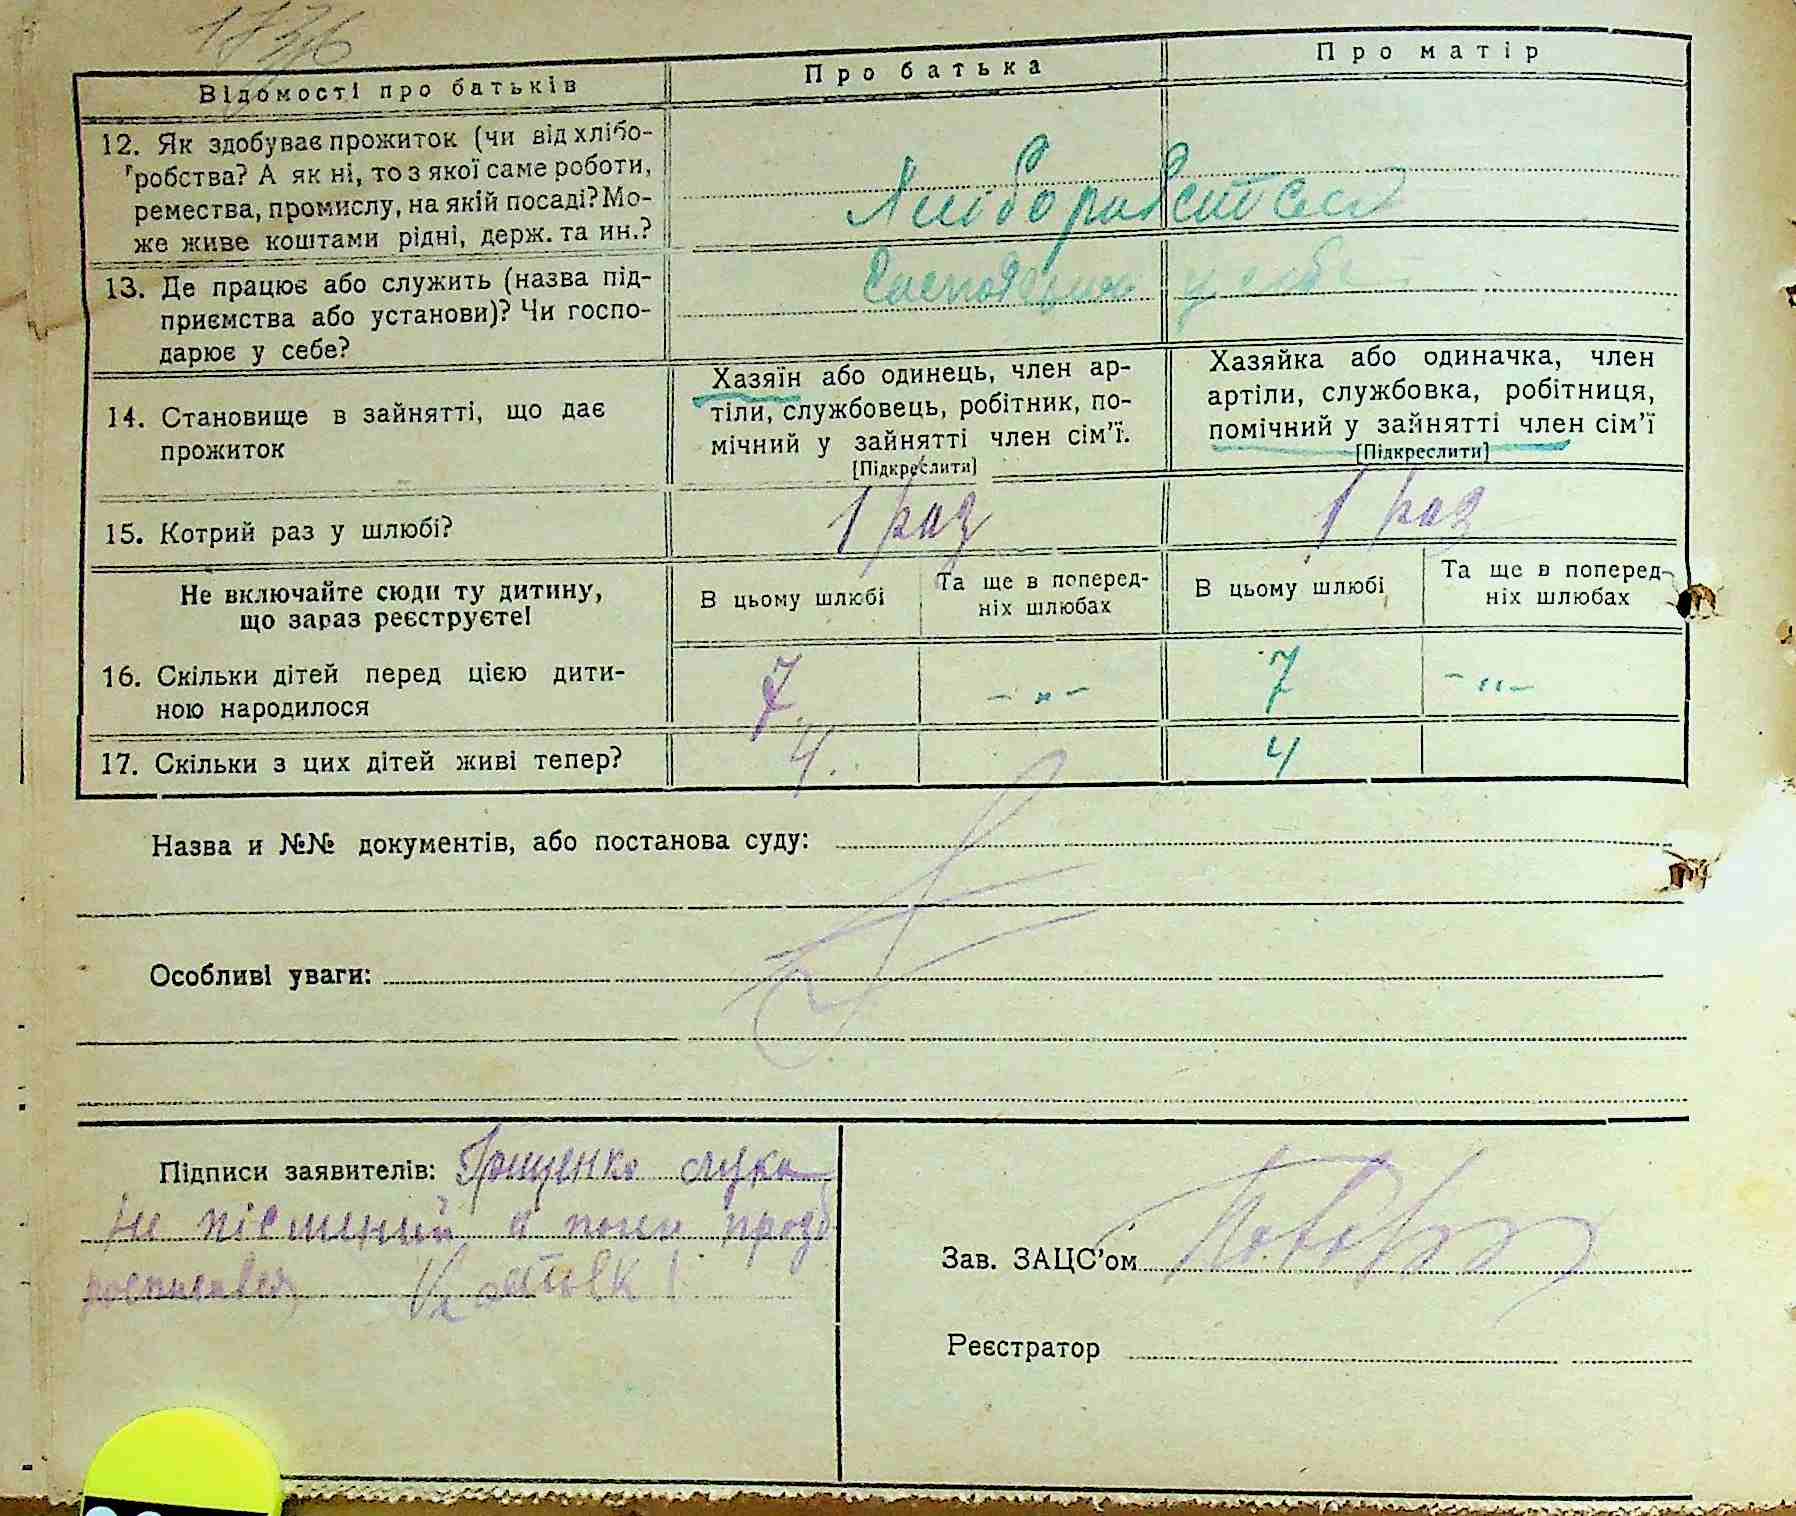 Відомості про батьків
Про батька
Про матір
12. Як здобуває прожиток (чи від хлібо-
робства? А як ні, то з якої саме роботи,
ремества, промислу, на якій посаді? Мо-
же живе коштами рідні, держ. та ин.?
13. Де працює або служить (назва під-
приємства або установи)? Чи госпо-
дарює у себе?
у себе
14. Становище в зайнятті, що дає
прожиток
Хазяїн або одинець, член ар-
тіли, службовець, робітник, по-
мічний у зайнятті член сім'ї.
[Підкреслити]
Хазяйка або одиначка, член
артіли, службовка, робітниця,
помічний у зайнятті член сім'ї
[Підкреслити]
15. Котрий раз у шлюбі?
1 раз
1 раз
Не включайте сюди ту дитину,
що зараз реєструєте!
В цьому шлюбі
Та ще в поперед-
ніх шлюбах
В цьому шлюбі
Та ще в поперед-
ніх шлюбах
16. Скільки дітей перед цією дити-
ною народилося
7
- „ -
7
- „ -
17. Скільки з цих дітей живі тепер?
4
4
Назва и №№ документів, або постанова суду:
Особливі уваги:
Підписи заявителів: Грищенко Лука
не písьмений а
Зав. ЗАЦС'ом
Реєстратор